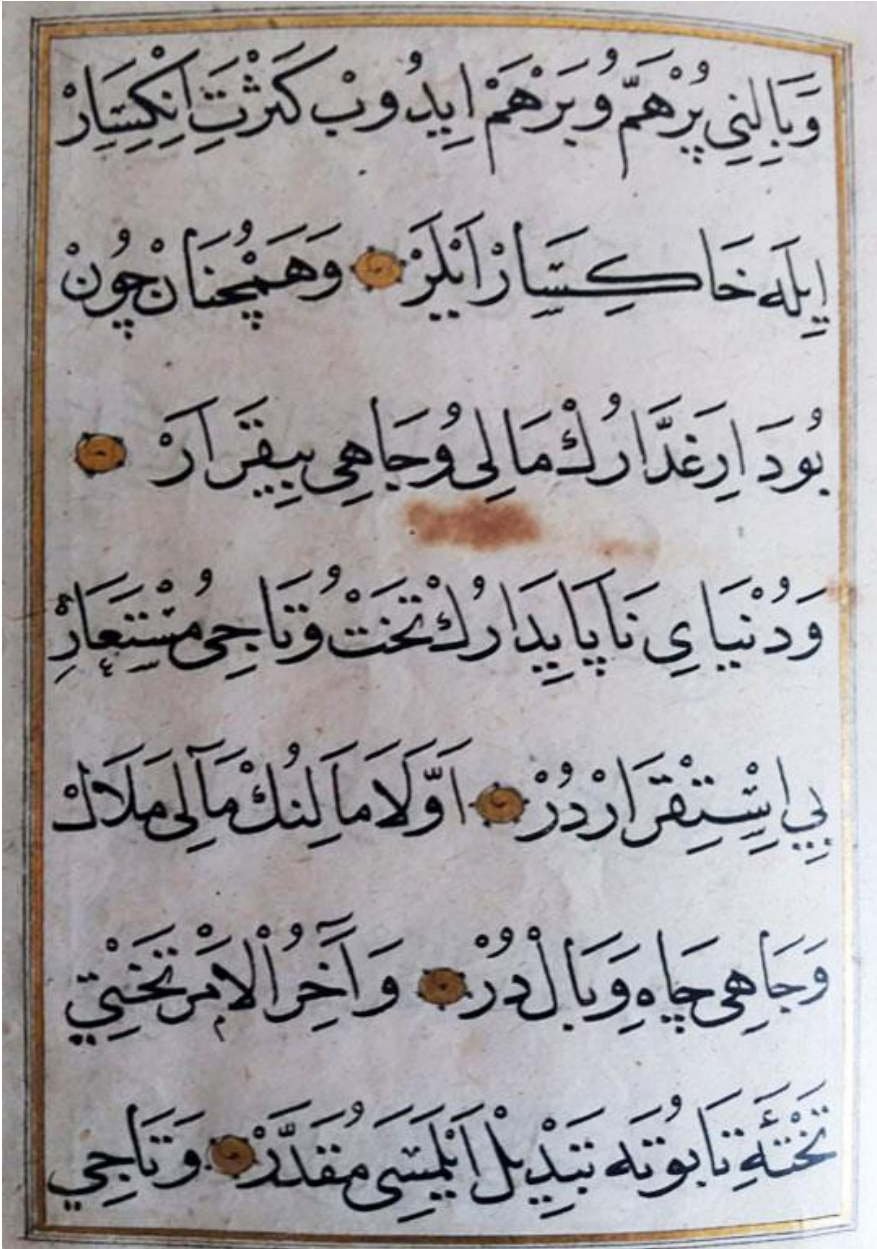 وَبَالِنِي پُرْهَمّ وُبَرْهَمْ اِيدُوبْ كَثْرَتِ اِنْكِسَارْ
اِيلَه خَاكِسَارْ اَيْلَرْ وَهَمْچُنَانْ چُونْ
بُودَارِ غَدَّارُكْ مَالِى وُجَاهِى بِيقَرَارْ
وَدُنْيَاىِ نَاپَايِدَارُكْ تَخْتْ وُتَاجِى مُسْتَعَارِ
بِي اِسْتِقْرَارْدُرْ اَوَّلَا مَالِنُكْ مَآلِى مَلَالْ
وَجَاهِى چَاهِ وَبَالْ دُرْ وَآخِرُ الْاَمْرْ تَخْتِنِي
تَخْتَهٔ تَابُوتَه تَبْدِيلْ اَيْلَمَسِى مُقَدَّرْ وَتَاجِي